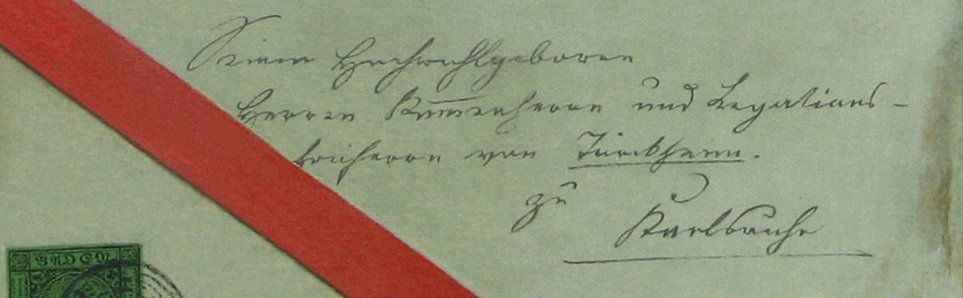 Seiner Hochwohlgeboren
Herren Kam̅erherrn und Legations-
Freiherrn von Türckheim.
zu Karlsruhe
BADEN